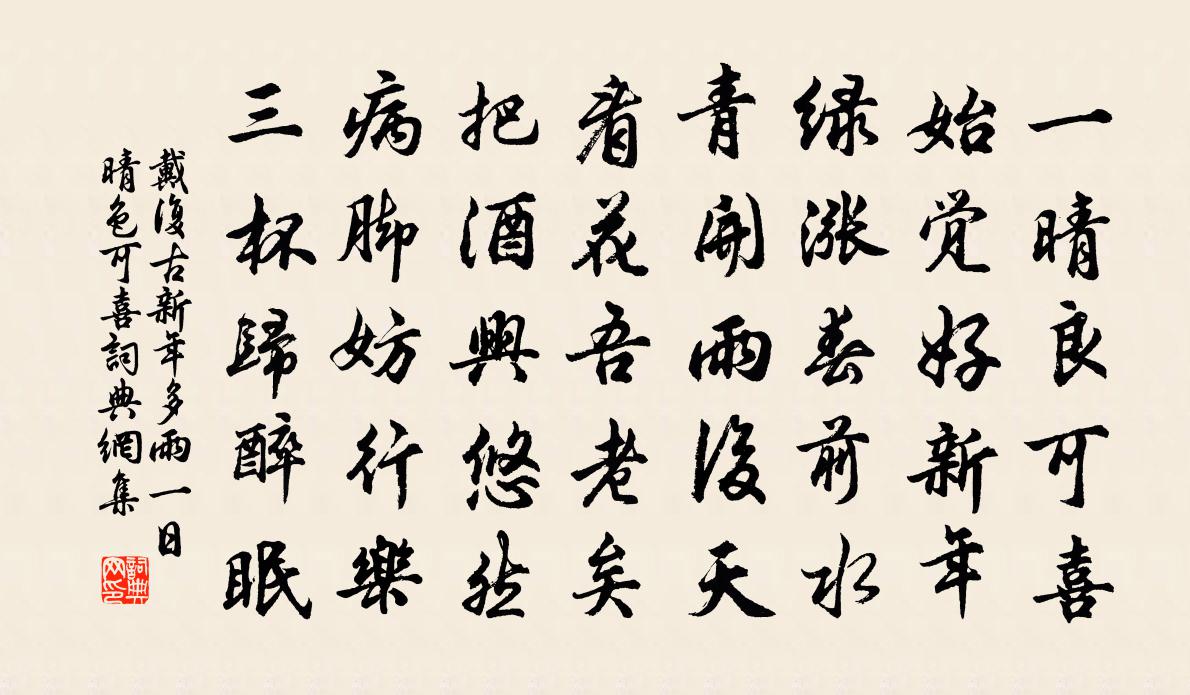 一晴良可喜
始觉好新年
緑漲春前水
青開雨後天
看花吾老矣
把酒興悠然
病脚妨行樂
三杯歸醉眠
戴復古新年多雨一日
晴色可喜詞典網集
詞典
网印